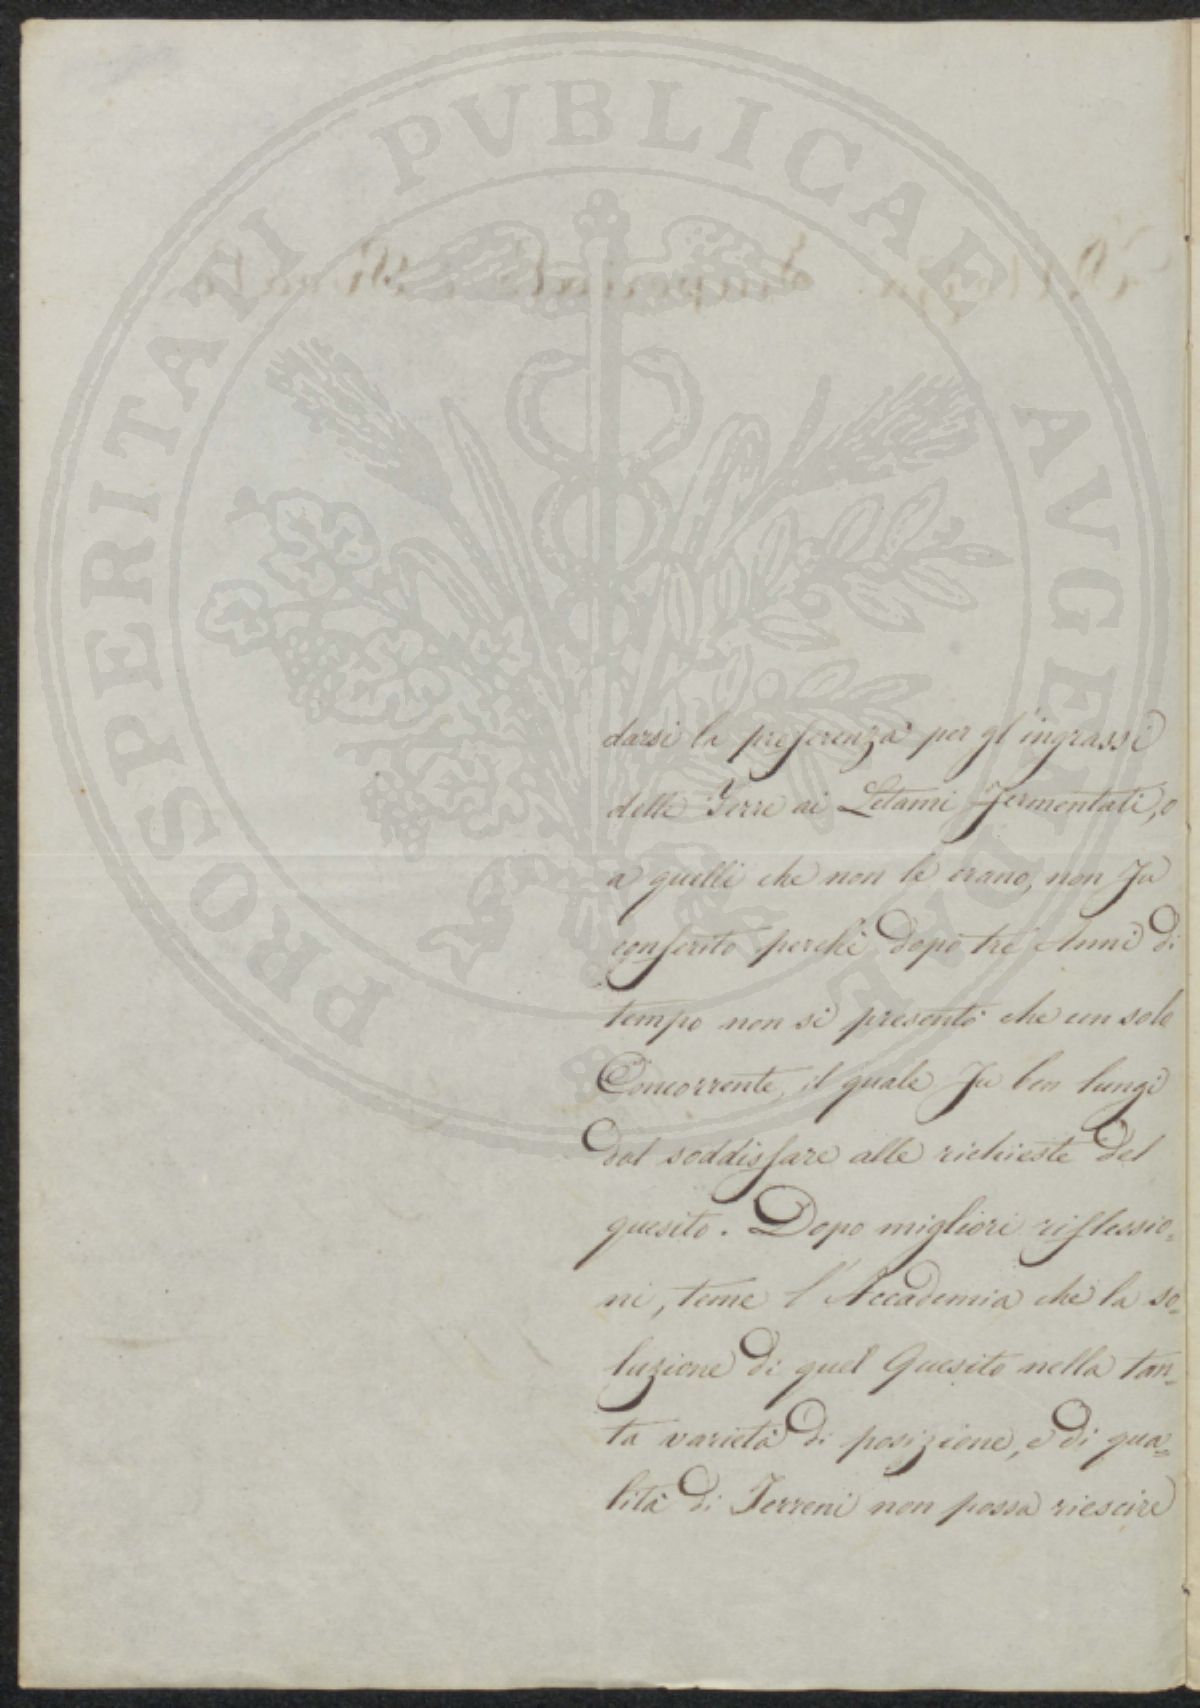 PROSPERITATI PVBLICAE AVGENDAE
darsi la preferenza per gl'ingrassi
delle Terre ai Letami Fermentati, o
a quelli che non lo erano, non fu
conferito perchè dopo tre Anni di
tempo non si presentò che un solo
Concorrente, il quale fu ben lungi
dal soddisfare alle richieste del
quesito. Dopo migliori riflessio=
ni, teme l'Accademia che la so=
luzione di quel Quesito nella tan=
ta varietà di posizione, e di qua=
lità di Terreni non possa riescire